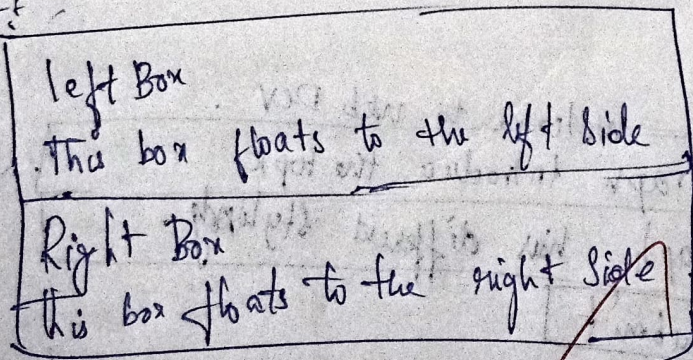 left Box
This box floats to the left side
Right Box
this box floats to the right side